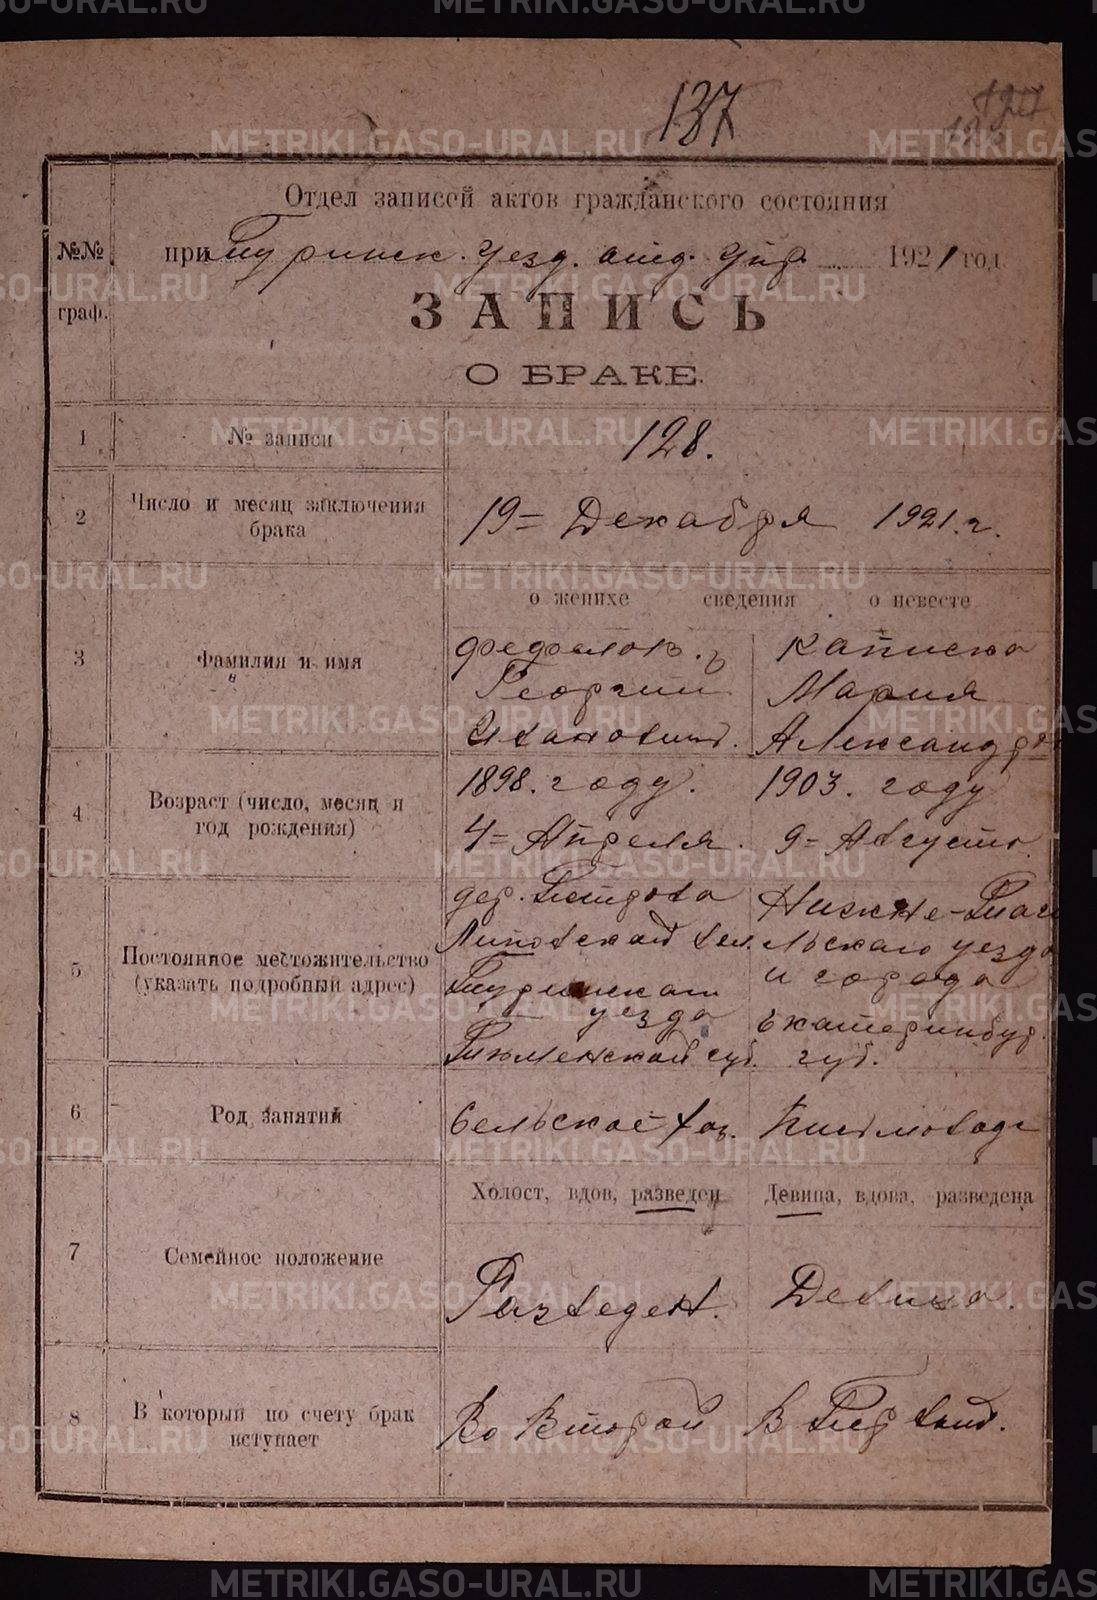 137
Отдел записей актов гражданского состояния
№№ граф.
при Туринск. Уезд. отд. Упр. 1921 год.
ЗАПИСЬ
О БРАКЕ.
1 № записи 128.
2 Число и месяц заключения брака 19 = Декабря 1921. г.
о женихе сведения о невесте
3 Фамилия и имя
Фефелов. Георгий Иванович.
Мария Александров
4 Возраст (число, месяц и год рождения)
1898. году. 4 = Апреля.
1903. году 9 = Августа.
5 Постоянное местожительство (указать подробный адрес)
дер. Петрова
Липовской вол.
Туринскаго
уезда
Тюменской губ.
Нижне-Таги
льскаго уезда
и города
Екатеринбур.
губ.
6 Род занятий Сельское хоз. Письмовод
7 Семейное положение
Холост, вдов, разведен Девица, вдова, разведена
Разведен. Девица.
8 В который по счету брак вступает
Во Второй В Первый.
METRIKI.GASO-URAL.RU